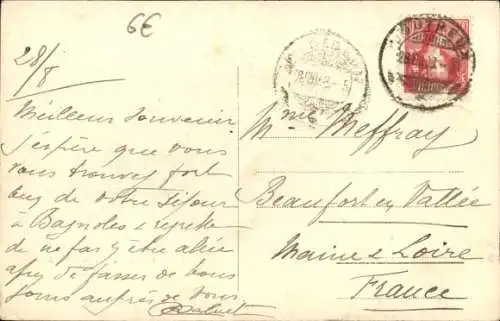 6€
28/8
Meilleur souvenir
J'espère que vous
vous trouvez fort
bien de votre séjour
à Bagnoles & regrette
de ne pas y être allée
afin de passer de bons
jours auprès de vous
MONTREUX
Mme Meffray
Beaufort en Vallée
Maine & Loire
France